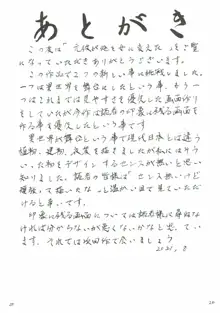 あとがき
この度は「元魂が他を女に変えた」をご覧に
なっていただきありがとうございます。
この作品で2つの新しい事に挑戦しました。
一つは異世界を舞台にしたという事、もう一
つはこれまでは見やすさを優先した画面作り
をしていたが今作は読者の印象に残る画面を
作る事を優先したという事です。
異世界が舞台なので現代日本とは違う
植物、建物、衣装を描きましたが私には
いった物をデザインするセンスが無いと思い
知りました。読者の皆様は「センス無いけど
頑張って描いたな」と温かい目で見ていただ
けると幸いです。
印象に残る画面については読者様に尋ねな
ければ分からないが悪くないかなと思ってい
ます。それでは次回作で会いましょう